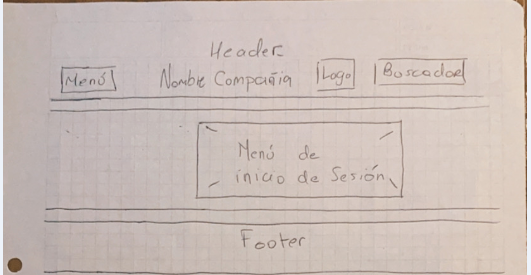 Header
Menú Nombre Compañia Logo Buscador
Menú de
inicio de Sesión
Footer